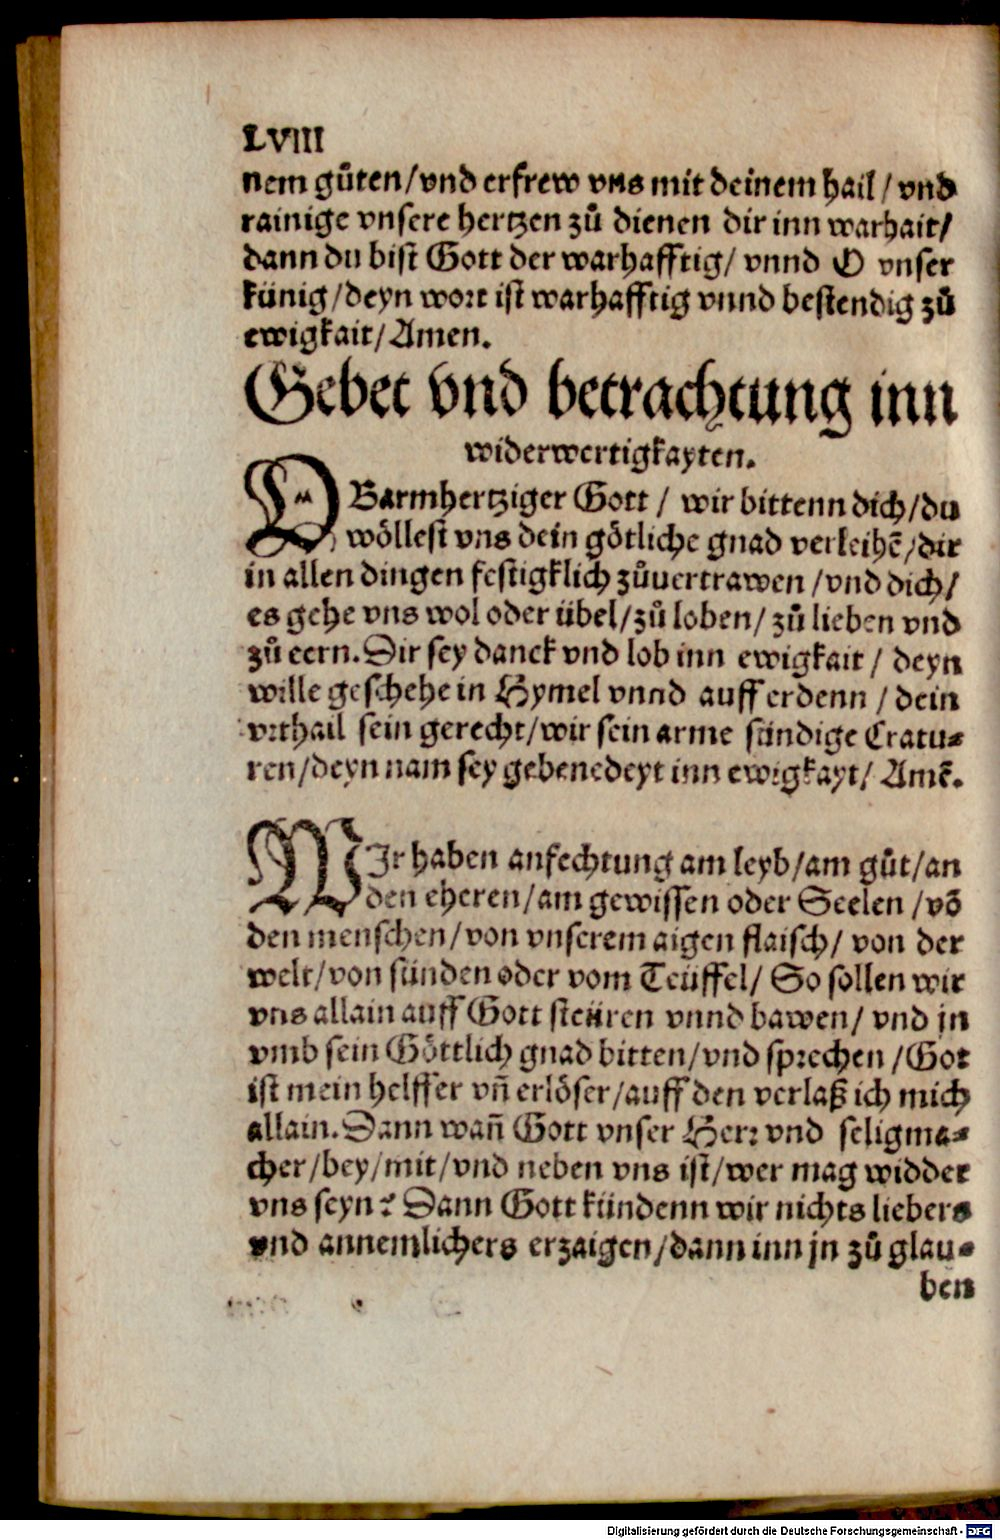 LVIII
nem guͦten/vnd erfrew vns mit deinem hail/vnd
rainige vnsere hertzen zuͦ dienen dir inn warhait/
dann du bist Gott der warhafftig/ vnnd O vnser
künig/deyn wort ist warhafftig vnnd bestendig zuͦ
ewigkait/Amen.
Gebet vnd betrachtung inn
widerwertigkayten.
O Barmhertziger Gott/ wir bittenn dich/du
wöllest vns dein götliche gnad verleihē/dir
in allen dingen festigklich zuͦuertrawen/vnd dich/
es gehe vns wol oder übel/zuͦ loben/ zuͦ lieben vnd
zuͦ eern. Dir sey danck vnd lob inn ewigkait/ deyn
wille geschehe in Hymel vnnd auff erdenn/dein
vrthail sein gerecht/wir sein arme sündige Cratu-
ren/deyn nam sey gebenedeyt inn ewigkayt/ Amē.
WIr haben anfechtung am leyb/am guͦt/an
den eheren/am gewissen oder Seelen/võ
den menschen/von vnserem aigen flaisch/ von der
welt/von sünden oder vom Teüffel/ So sollen wir
vns allain auff Gott steüren vnnd bawen/ vnd jn
vmb sein Göttlich gnad bitten/vnd sprechen/Got
ist mein helffer vñ erlöser/auff den verlaß ich mich
allain. Dann wañ Gott vnser Herr vnd seligma-
cher/bey/mit/vnd neben vns ist/wer mag widder
vns seyn? Dann Gott kündenn wir nichts liebers
vnd annemlichers erzaigen/dann inn jn zuͦ glau-
ben
Digitalisierung gefördert durch die Deutsche Forschungsgemeinschaft - DFG